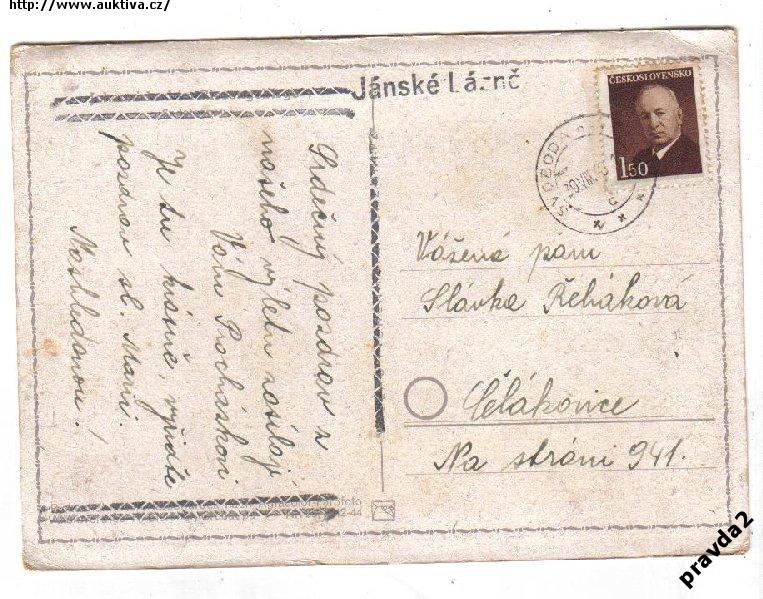 http://www.auktiva.cz/
Jánské Lázně
ČESKOSLOVENSKO
1.50
SVOBODA
Srdečný pozdrav z
našeho výletu zasílají
Vám Procházkovi
Je tu krásně,
pozdrav sl. Marii.
Nashledanou!
Vážená paní
Slávka Řeháková
Čelákovice
Na stráni 941.
pravda2